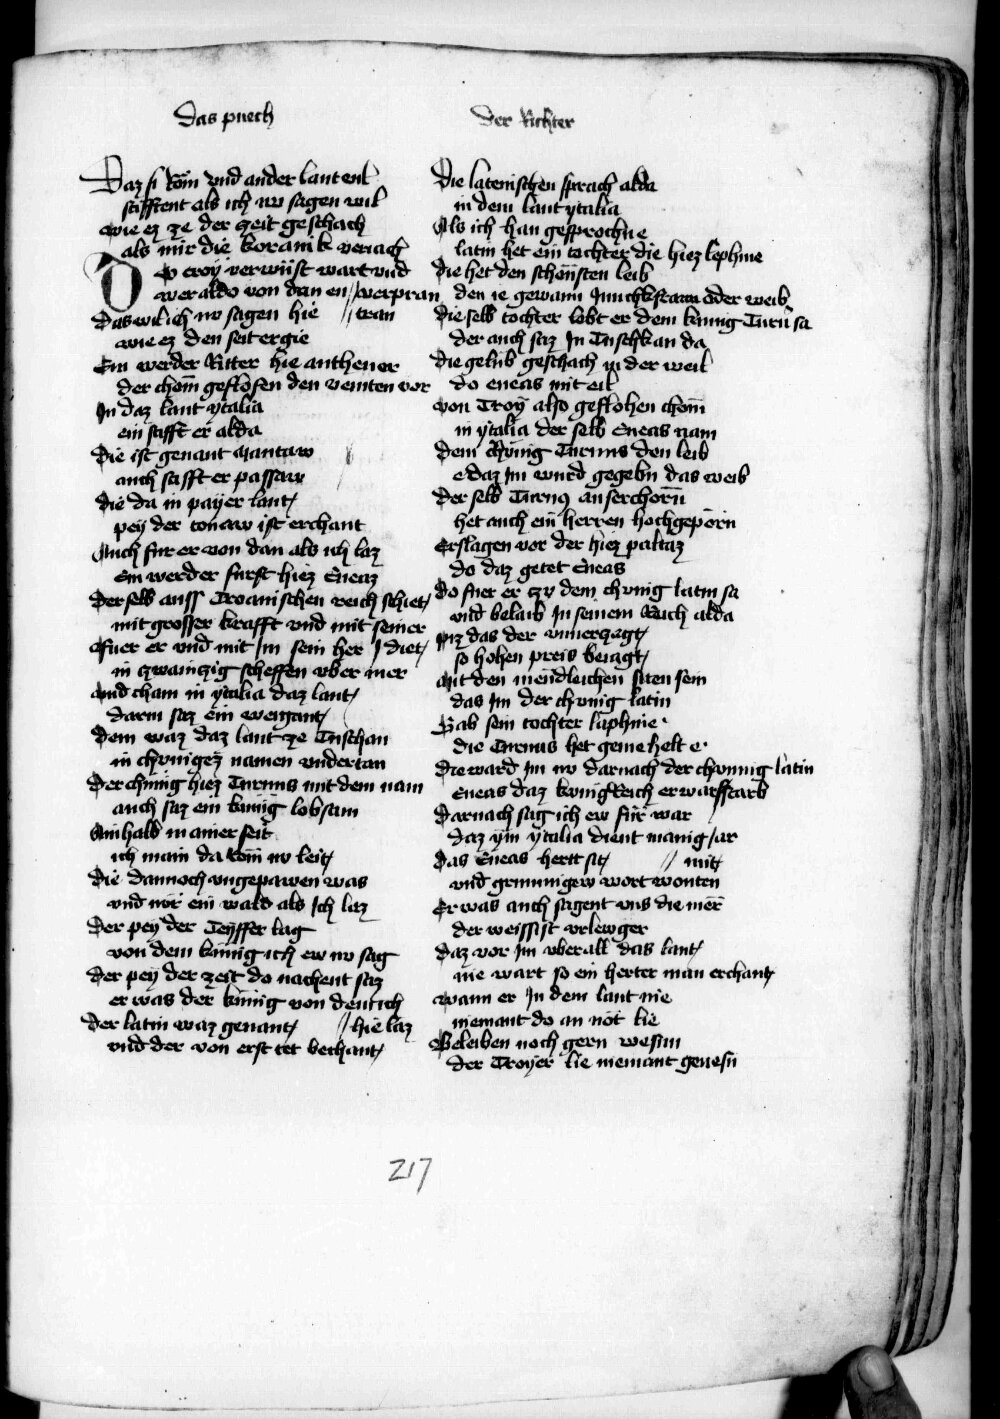 das puech
der Richter
Daz si Rom vnd ander lant vil
stifftent als ich nv sagen wil
wie ez ze der zeit geschach
als mir die koranik veriach
Do troy verwüst wart vnd
wer aldo von dan en // verpran
das wil ich nv sagen hie // tran
wie ez den seit ergie
Ein werder Ritter hie anthenor
der chom geflosen den veinten vor
In daz lant ytalia
ein stifft er alda
die ist genant Mantaw
auch stifft er passaw
die da in payer lant
pey der tonaw ist erchant
Auch fur er von dan als ich laz
Ein werder fürst hiez Eneaz
der selb auss Troanischen reich schiet
mit grosser krafft vnd mit seiner
fuer er vnd mit Im sein her / diet
in zwainczig scheffen vber mer
vnd cham in ytalia daz lant
darin saz ein weigant
dem waz daz lant ze Tuschan
in chvniges namen vndertan
der chunig hiez Turnus mit dem nam
auch saz ein künig lobsam
Ainhalb in ainer seit
ich main da Rom nv leit
die dannoch vngepawen was
vnd nür ein wald als Ich laz
der pey der Teyffer lag
von dem künig ich ew nv sag
der pey der zeit do nachent saz
er was der künig von den ich
der latin waz genant // hie laz
vnd der von erst tet bechant
die latenischen sprach alda
in dem lant ytalia
Als ich han gesprochne
latin het ein tochter die hiez lephine
die het den schönsten leib
den ie gewann Junchkfraw oder weib
die selb tochter lobt er dem künig Turn sa
der auch saz In Tuschkan da
die gelüb geschach in der weil
do eneas mit eil
von Troy also geflohen chom
in ytalia der selb Eneas nam
dem chönig Turnus den leib
e daz im wurd gegebn das weib
der selb Turnus auserchorn
het auch ein herren hochgeporn
Erslagen vor der hiez pallaz
do daz getet Eneas
do fuer er czv dem chvnig latin sa
vnd belaib In seinem Reich alda
piz das der vnuerzagt
so hohen preis beiagt
Mit den mendleichen siten sein
das Im der chvnig latin
Gab sein tochter laphine
die Turnus het gemehelt e
die ward Im nv darnach der chvnnig latin
Eneas daz künig Reich erwarff starb
darnach sag ich ew für war
daz ym ytalia dient manig iar
das Eneas hertt sit // mit
vnd grimmigew wort wonten
Er was auch sagent vns die mer
der weissist vrlewger
daz vor Im vberall das lant
nie wart so ein herter man erchant
wann er In dem lant nie
niemant do an not lie
Beleiben noch gern wesen
der Troyer lie niemant genesn
217